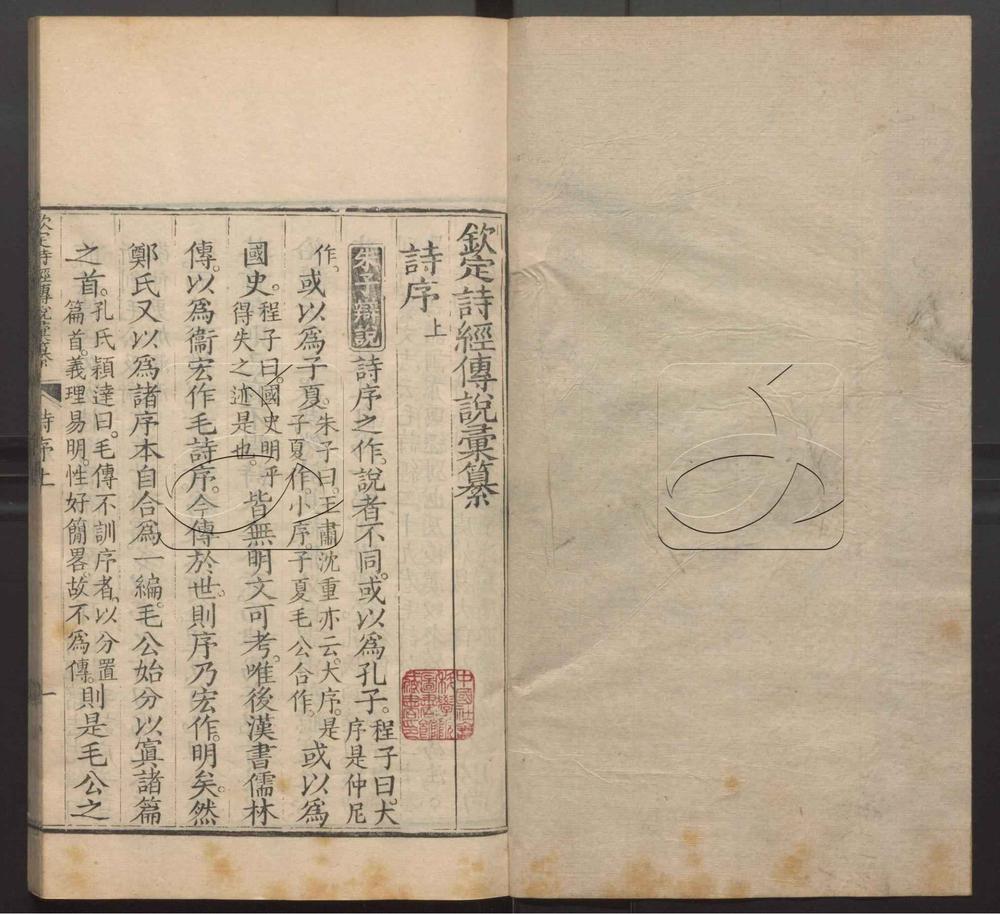 欽定詩經傳說彙纂
詩序上
朱子辯說 詩序之作。說者不同。或以爲孔子。程子曰。大序是仲尼
作。或以爲子夏。朱子曰。王肅沈重亦云。大序。是子夏作。小序。子夏毛公合作。或以爲
國史。程子曰。國史明乎得失之迹是也。皆無明文可考。唯後漢書儒林
傳。以爲衞宏作毛詩序。今傳於世。則序乃宏作。明矣。然
鄭氏又以爲諸序本自合爲一編。毛公始分以寘諸篇
之首。孔氏穎達曰。毛傳不訓序者。以分置篇首。義理易明。性好簡畧。故不爲傳。則是毛公之
欽定詩經傳說彙纂 詩序上 一